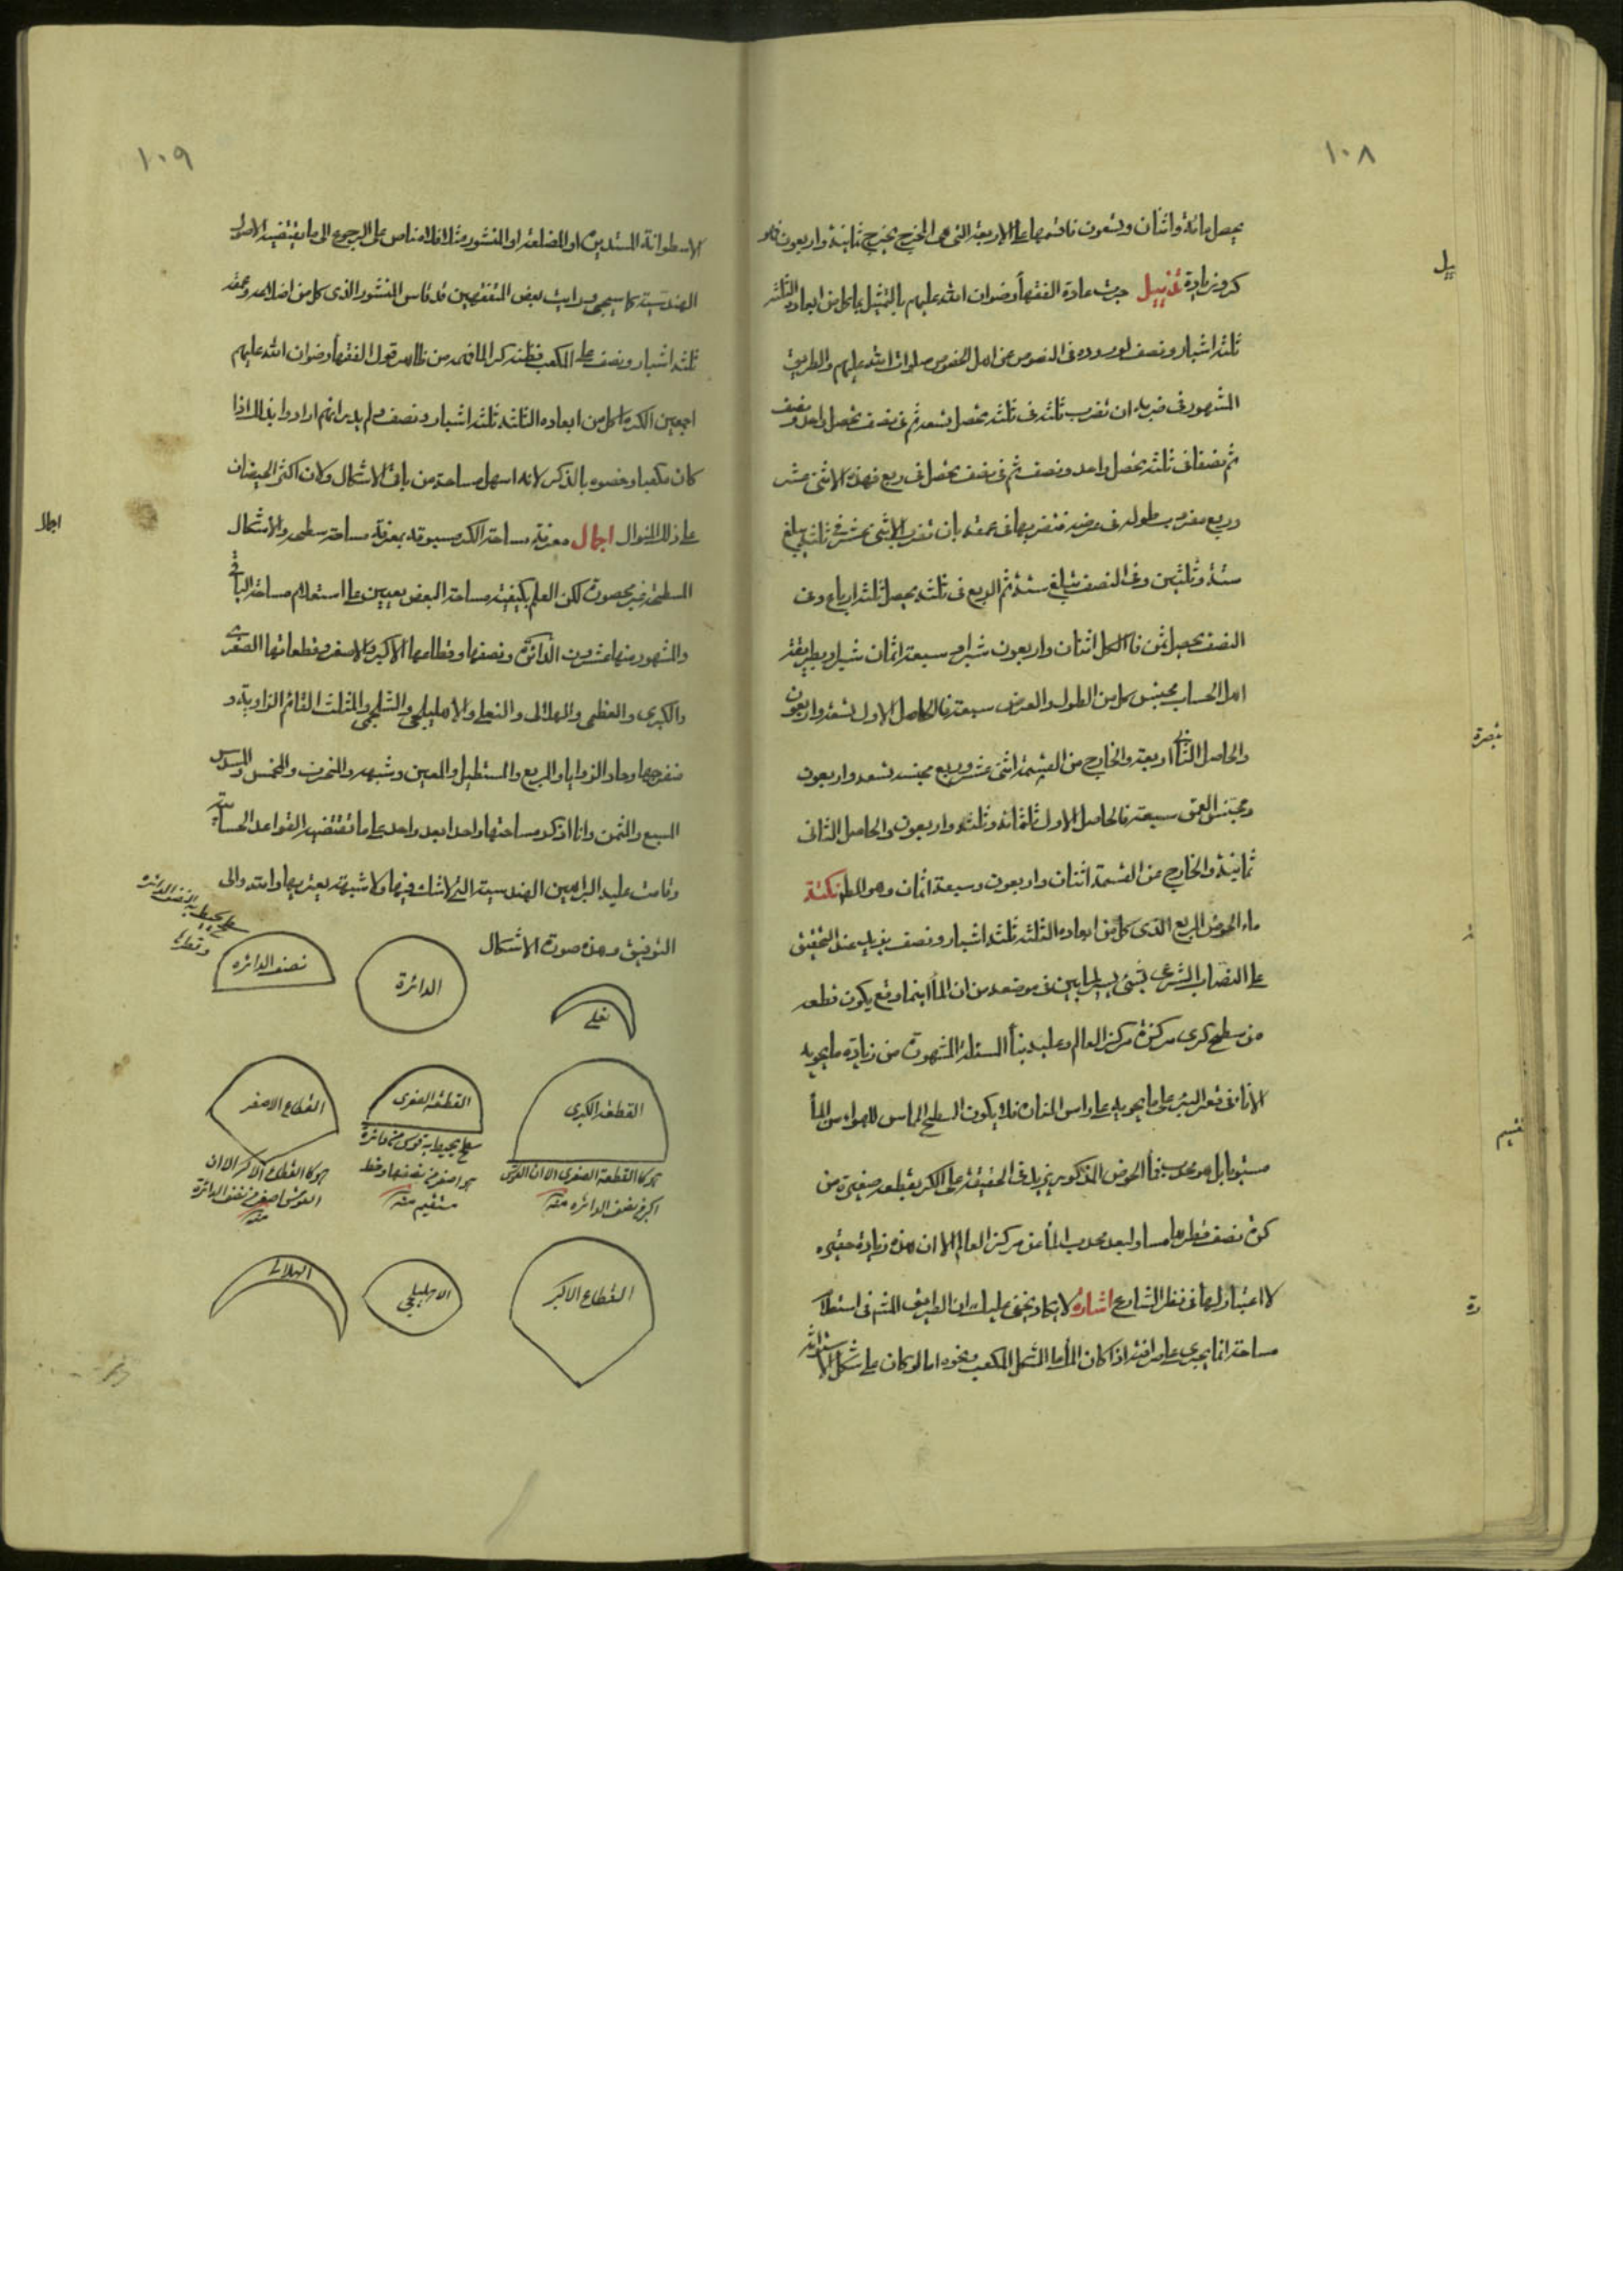 ١٠٨
يحصل مائة واثنان وتسعون فاقسمها على الاربعة التى هى المخرج يخرج ثمانية واربعون فهو
كر وزيادة تذييل جرت عادة الفقهاء رضوان الله عليهم بالتمثيل بما كل من ابعاده الثلثة
ثلثة اشبار ونصف لوروده فى النصوص عن اهل الخصوص صلوات الله عليهم والطريق
المشهور فى ضربه ان تضرب ثلثة فى ثلثة يحصل تسعة ثم فى نصف يحصل واحد ونصف
ثم نصفا فى ثلثة يحصل واحد ونصف ثم فى نصف يحصل ربع فهذه الاثنى عشر
وربع مضروب طوله فى عرضه فتضربها فى عمقه بان تضرب الاثنى عشر فى ثلثة يبلغ
ستة وثلثين وفى النصف تبلغ ستة ثم الربع فى ثلثة يحصل ثلثة ارباع وفى
النصف يحصل ثمن فالكل اثنان واربعون شبرا وسبعة اثمان شبر وبطريقة
اهل الحساب مجنس كل من الطول والعرض سبعة فالحاصل الاول تسعة واربعون
والحاصل الثانى اربعة والخارج من القسمة اثنى عشر وربع مجنسه تسعة واربعون
ومجنس العمق سبعة فالحاصل الاول ثلثمائة وثلثة واربعون والحاصل الثانى
ثمانية والخارج عن القسمة اثنان واربعون وسبعة اثمان وهو المط نكتة
ماء الحوض المربع الذى كل من ابعاده الثلثة ثلثة اشبار ونصف يزيد عند التحقيق
على النصاب الشرعى بشئ يسير لما بين فى موضعه من ان الماء اينما وقع يكون قطعه
من سطح كرى مركزه مركز العالم وعليه بناء المسئلة المشهورة من زيادة ما يحويه
الاناء فى قعر البئر على ما يحويه على راس المنارة فلا يكون السطح المماس للهواء من الماء
مستويا بل هو محدب فماء الحوض المذكور يزيد فى الحقيقة على الكر بقطعه صغيرة من
كرة نصف قطرها مساو لبعد محدب الماء عن مركز العالم الا ان هذه زيادة حقيره
لا اعتبار لها فى نظر الشارع اشارة لا يكاد يخفى عليك ان الطريق المشهور فى استعلام
مساحته انما يجرى على مرافقة اذا كان الماء ما الشكل المكعب ونحوه اما لو كان على شكل
تبصرة
١٠٩
الاسطوانة المستديرة او المضلعة او المنشور مثلا فلا مناص على الرجوع الى ما يقتضيه الاصول
الهندسية كما سيجئ ورايت بعض المتفقهين قد قاس المنشور الذى كل من اضلاعه وعمقه
ثلثة اشبار ونصف على المكعب فظنه كرا لما فهمه من ظاهر قول الفقهاء رضوان الله عليهم
اجمعين الكر ما كل من ابعاده الثلثة ثلثة اشبار ونصف ولم يدر انهم ارادوا بذلك اذا
كان مكعبا وخصوه بالذكر لانه اسهل مساحة من باقى الاشكال ولان اكثر الحيضان
على ذلك المنوال اجمال معرفة مساحة الكر مسبوقة بمعرفة مساحة سطحه والاشكال
السطحية غير محصورة لكن العلم بكيفية مساحة البعض يعين على استعلام مساحة الباقى
والمشهور منها عشرون الدائرة ونصفها وقطاعها الاكبر والاصغر وقطعاتها الصغرى
والكبرى والعظمى والهلالى والنعلى والاهليلجى والشلجمى والمثلث القائم الزاوية و
منفرجها وحاد الزوايا والمربع والمستطيل والمعين وشبهه والمنحرف والمخمس والمسدس
المسبع والمثمن وانا اذكر مساحتها واحدا بعد واحد على ما تقتضيه القواعد الحسابية
وقامت عليه البراهين الهندسية التى لا شك فيها ولا شبهة يعتريها والله ولى
التوفيق وهذه صورة الاشكال
اجمال
نعلى
الدائرة
نصف الدائره
سطح يحيط به نصف الدائره
وقطرها
القطعة الكبرى
القطعة الصغرى
القطاع الاصغر
هو كالقطعة الصغرى الا ان القوس
اكبر من نصف الدائره منه
سطح يحيط به قوس من دائرة
هو اصغر من نصفها وخط
مستقيم منه
هو كالقطاع الاكبر الا ان
القوس اصغر من نصف الدائرة
منه
القطاع الاكبر
الاهليلجى
الهلالى